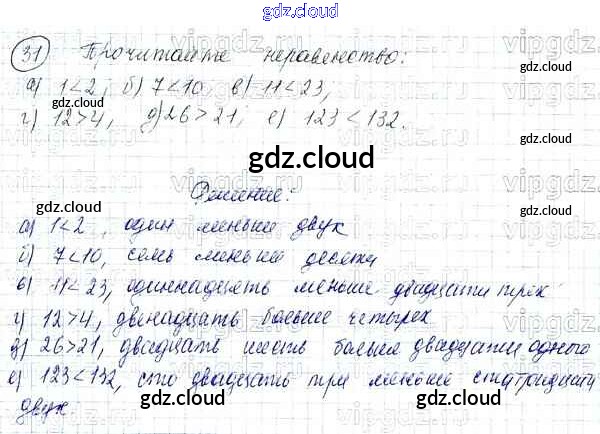 gdz.cloud
31 Прочитайте неравенство:
а) 1<2; б) 7<10, в) 11<23,
gdz.cloud gdz.cloud
г) 12>4, д) 26>21, е) 123<132.
gdz.cloud
Решение:
а) 1<2, один меньше двух
б) 7<10, семь меньше десяти
в) 11<23, одиннадцать меньше двадцати трёх
г) 12>4, двенадцать больше четырех
д) 26>21, двадцать шесть больше двадцати одного
е) 123<132, сто двадцать три меньше ста тридцати
двух.
gdz.cloud gdz.cloud